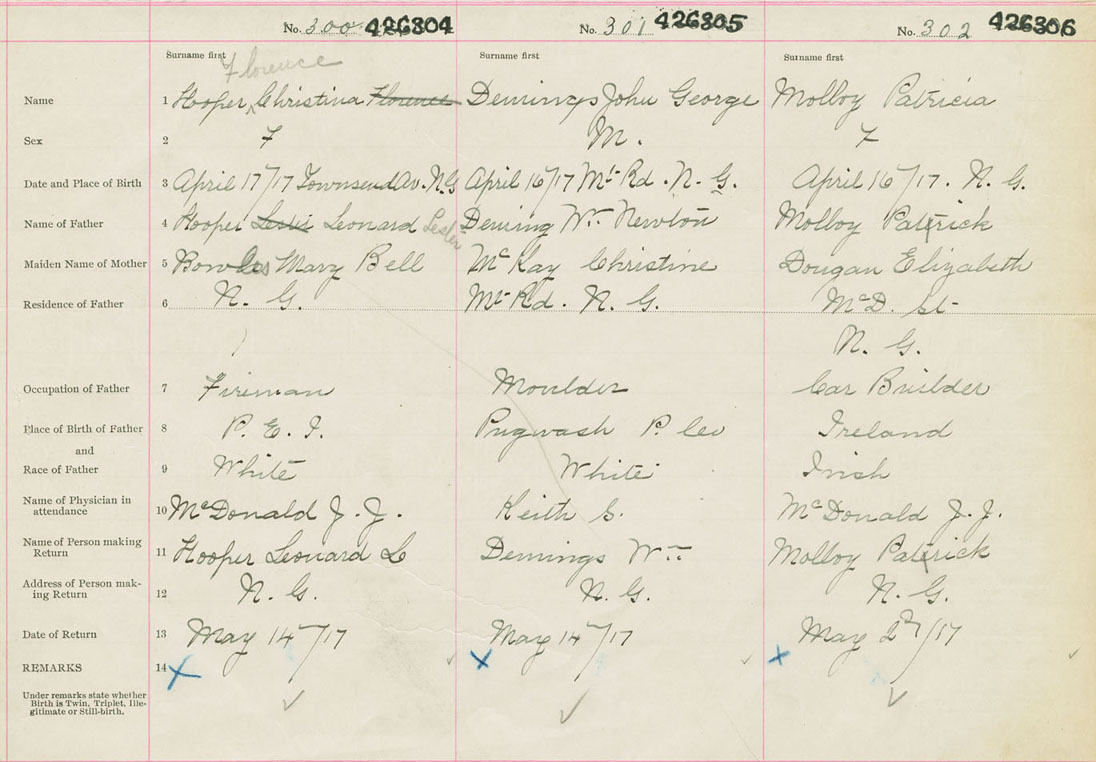 No. 300 426304 No. 301 426305 No. 302 426306
Surname first Surname first Surname first
Florence
Name 1 Hooper Christina Florence Demings John George Molloy Patricia
Sex 2 F M. F
Date and Place of Birth 3 April 17/17 Townsend Av. N.G April 16/17 Mt Rd. N. G. April 16/17. N. G.
Name of Father 4 Hooper Leslie Leonard Lester Deming Wm Newton Molloy Patrick
Maiden Name of Mother 5 Bowles Mary Bell McKay Christine Dougan Elizabeth
Residence of Father 6 N. G. Mt Rd. N. G. McD. St
N. G.
Occupation of Father 7 Fireman Moulder Car Builder
Place of Birth of Father 8 P. E. I. Pugwash P. Ireland
and
Race of Father 9 White White Irish
Name of Physician in
attendance 10 McDonald J. J. Keith S. McDonald J. J.
Name of Person making
Return 11 Hooper Leonard L Demings Wm Molloy Patrick
Address of Person mak-
ing Return 12 N. G. N. G. N. G.
Date of Return 13 May 14/17 May 14/17 May 2/17
REMARKS 14 X X X
Under remarks state whether
Birth is Twin, Triplet, Ille-
gitimate or Still-birth.